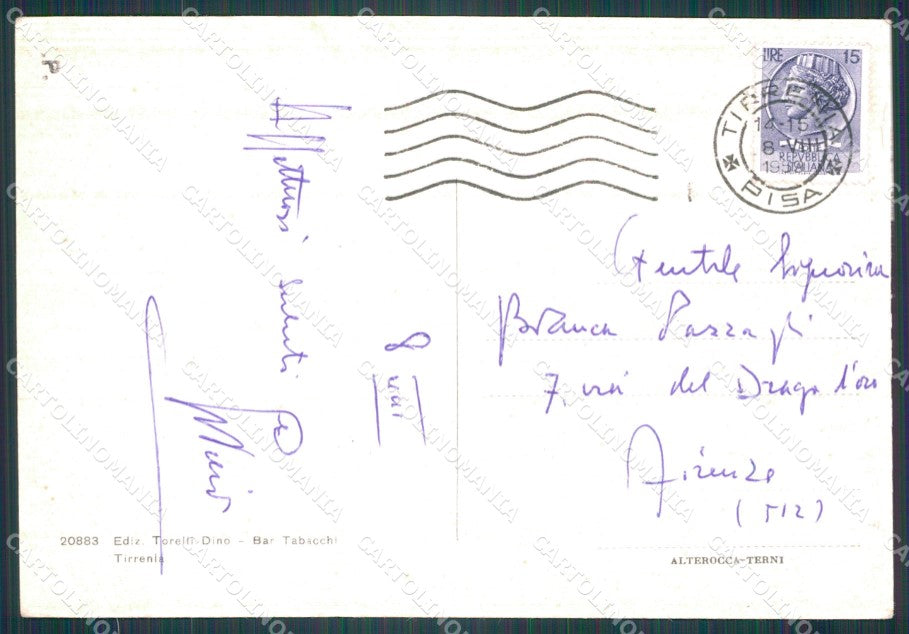 LIRE 15
REPVBBLICA ITALIANA
TIRRENIA
14-15
8 VIII
19
PISA
P.
Affettuosi saluti
8 VIII
Gentile Signorina
Bianca
7, via del Drago d'oro
Firenze
(FIZ)
20883 Ediz. Torelli Dino - Bar Tabacchi
Tirrenia
ALTEROCCA-TERNI
CARTOLINOMANIA